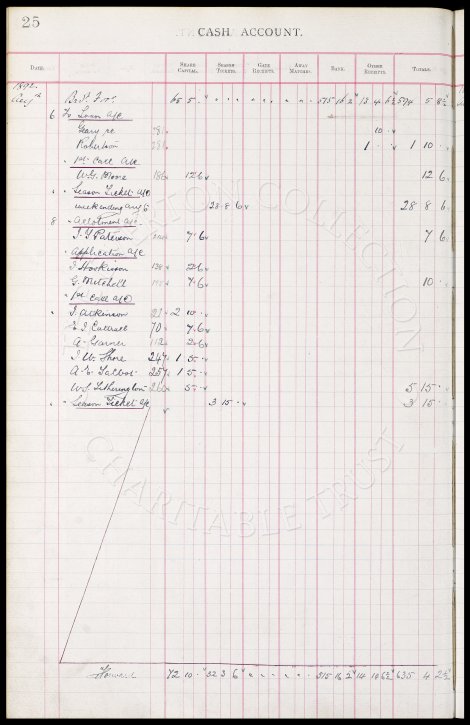 25
CASH ACCOUNT.
DATE. SHARE CAPITAL. SEASON TICKETS. GATE RECEIPTS. AWAY MATCHES. BANK. OTHER RECEIPTS. TOTALS.
1892
Augt
6 To Loan a/c
Geary 10
Robertson 1 1 10
" 1st Call a/c
W.G. Moore 186 12 6 12 6
" Season Ticket a/c
week ending Aug 6 28 8 6 28 8 6
8 " Allotment a/c
J. Y. Paterson 7 6 7 6
" Application a/c
J Hawkinson 2 6
G. Mitchell 7 6 10
" 1st Call a/c
J. Atkinson 2 10
E J Cattrall 70 7 6
A. Garner 112 2 6
J. W. Shore 247 1 5
A. E. Talbot 257 1 5
W. J. Litherington 5 5 15
" Season Ticket a/c 3 15 3 15
Forward 72 10 32 3 6 515 16 2 14 635 4
EVERTON COLLECTION
CHARITABLE TRUST